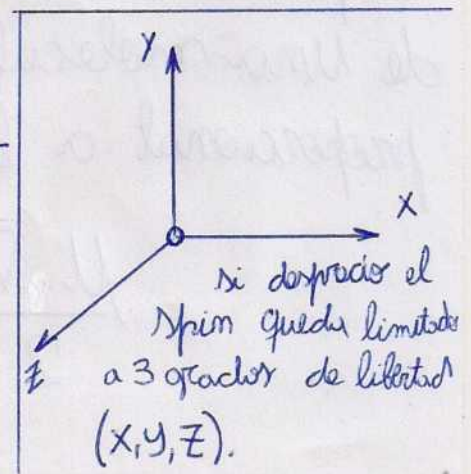 Y
X
Z
si desprecio el
spin queda limitado
a 3 grados de libertad
(X, Y, Z).